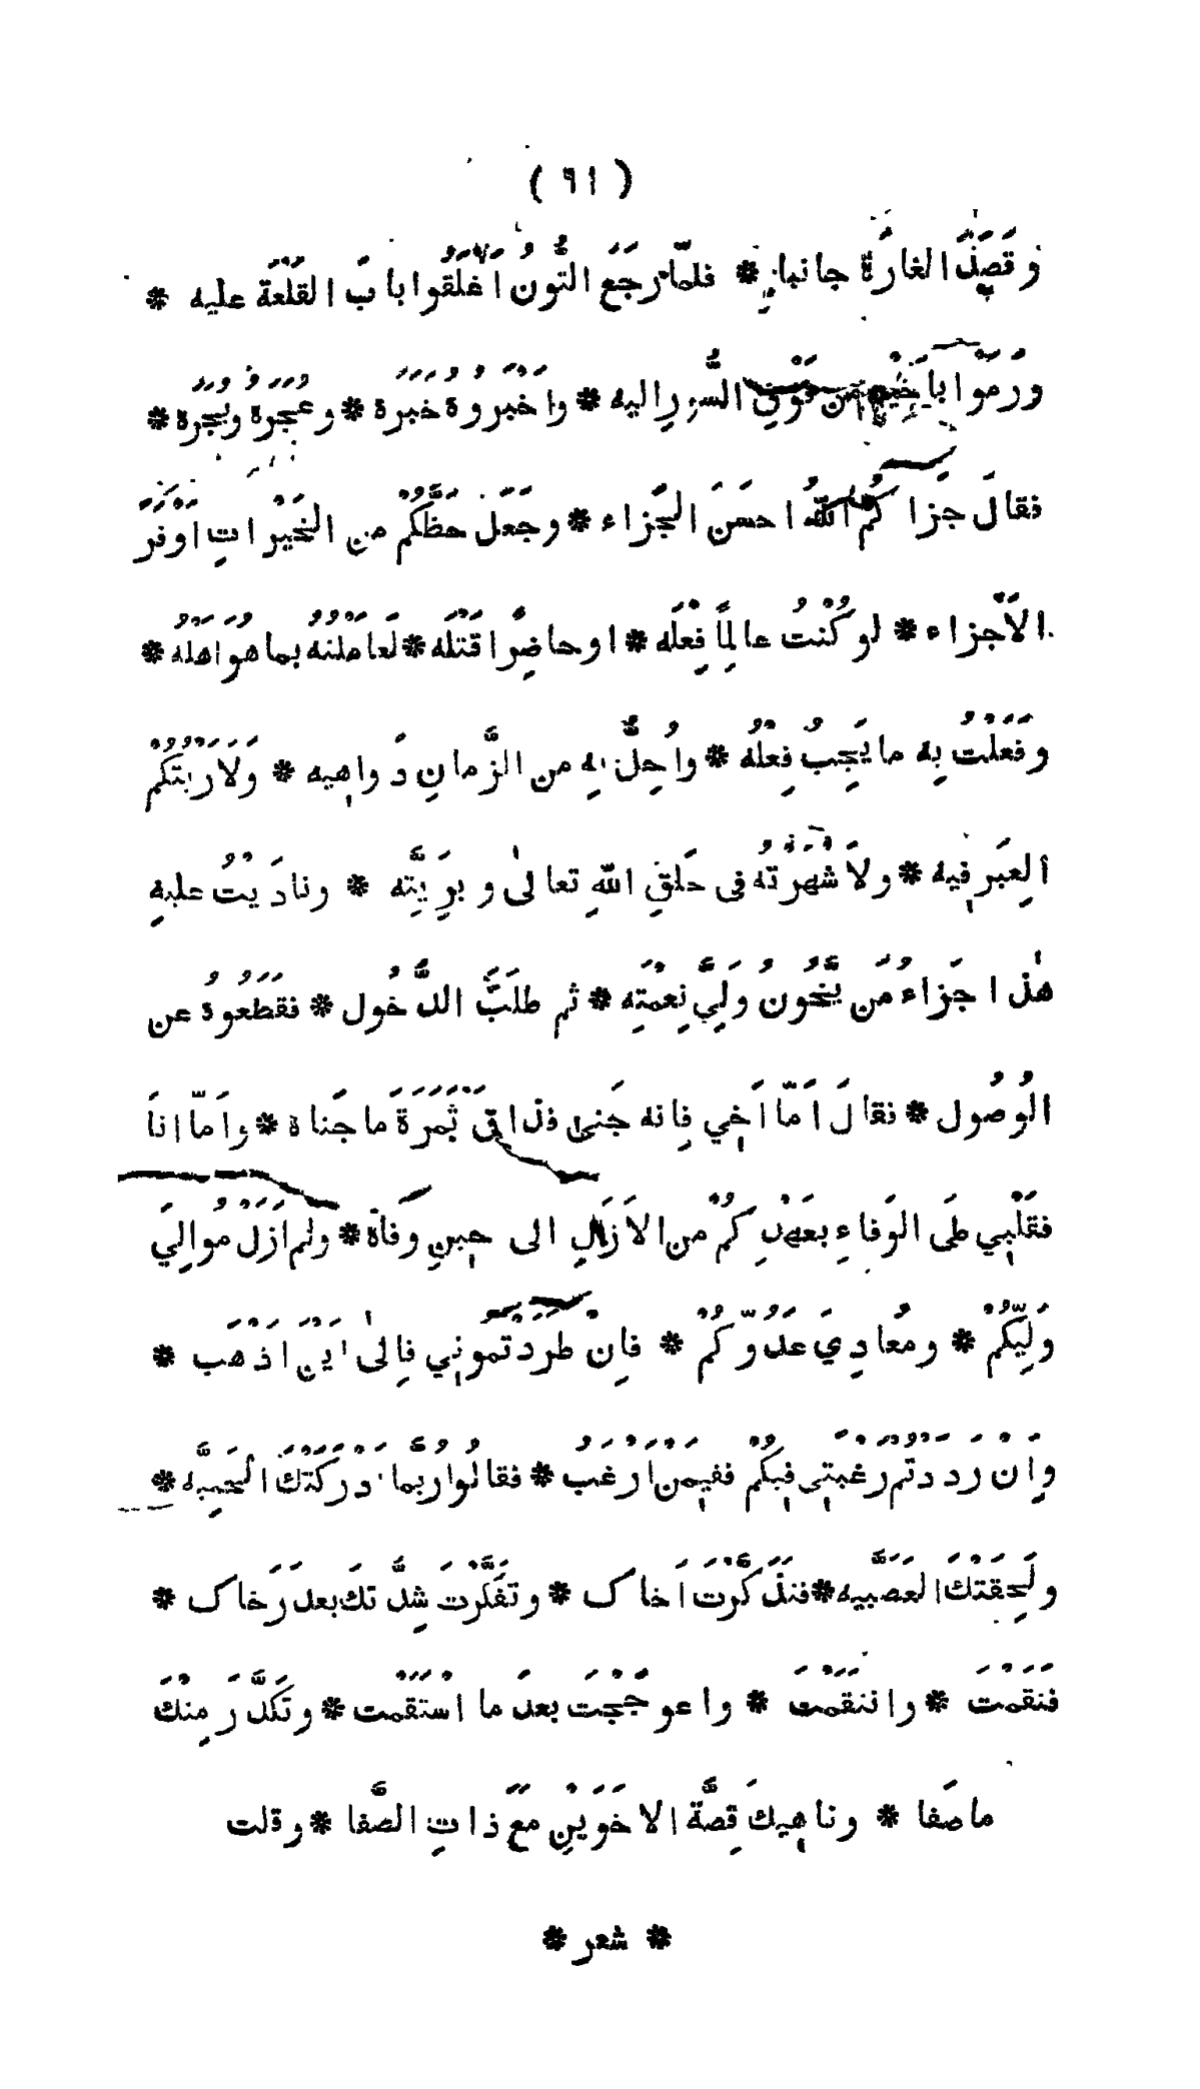 ( ٦١ )
وَقَصَدَ الغارَةُ جانبا * فلمَّا رَجَعَ التُّونُ اَغْلَقُوا بابَ القَلْعَةَ عليه *
ورَمَوْا بِاَخِيْهِ مِن فَوْقِ السُّوْرِ اليه * واَخْبَرُوهُ خَبَرَهُ * وعُجَرَهُ وبُجَرَهُ *
فقالَ جَزاكُمُ اللهُ احسَنَ الجَزاء * وجَعَلَ حَظَّكُمْ من الخَيْراتِ اَوْفَرَ
الاَجْزاء * لو كُنْتُ عالِمًا فِعْلَه * او حاضِرًا قَتْلَه * لَعامَلْتُهُ بما هُوَ اَهْلُهُ *
وفَعَلْتُ بِه ما يَجِبُ فِعْلُهُ * واُحِلُّ بِه من الزَّمانِ دَواهِيه * وَلاَرَيْتُكُمْ
العِبَرَ فِيه * ولاَشْهَرْتُهُ فى خَلقِ اللهِ تعالىٰ وبَرِيَّتِه * ونادَيْتُ عليهِ
هٰذا جَزاءُ مَن يَّخُونُ وَلِيَّ نِعْمَتِه * ثم طلَبَ الدُّخُول * فقَطَعُوهُ عن
الوُصُول * فقالَ اَمَّا اَخِي فِانه جَنىٰ فذاقَ ثَمَرَةَ ما جَناهُ * واَمَّا اناَ
فقَلْبِي على الوَفاءِ بعَهْدِكُمْ من الاَزَلِ الى حِينِ وَفاةِ * ولم اَزَلْ مُوالِيَ
وَلِيِّكُمْ * ومُعادِيَ عَدُوِّكُمْ * فاِنْ طَرَدْتمُونِي فِالىٰ اَيْنَ اَذْهَب *
وِاَنْ رَدَدْتُم رَغْبَتِي فِيكُمْ ففِيمَن اَرْغَب * فقالُوا رُبَّما اَدْرَكَتْكَ الحَمِيَّه *
ولَحِقَتْكَ العَصَبِيَّه * فتَذَكَّرْتَ اَخاك * وتَفَكَّرْتَ شِدَّتَكَ بعدَ رَخاك *
فنَقَمْتَ * وانْتَقَمْتَ * واعوَجَجْتَ بعدَ ما اسْتَقَمْت * وتَكَدَّرَ مِنْكَ
ما صَفا * وناهِيكَ قِصَّةُ الاخَوَيْنِ مَعَ ذاتِ الصَّفا * وقلت
* شعر *